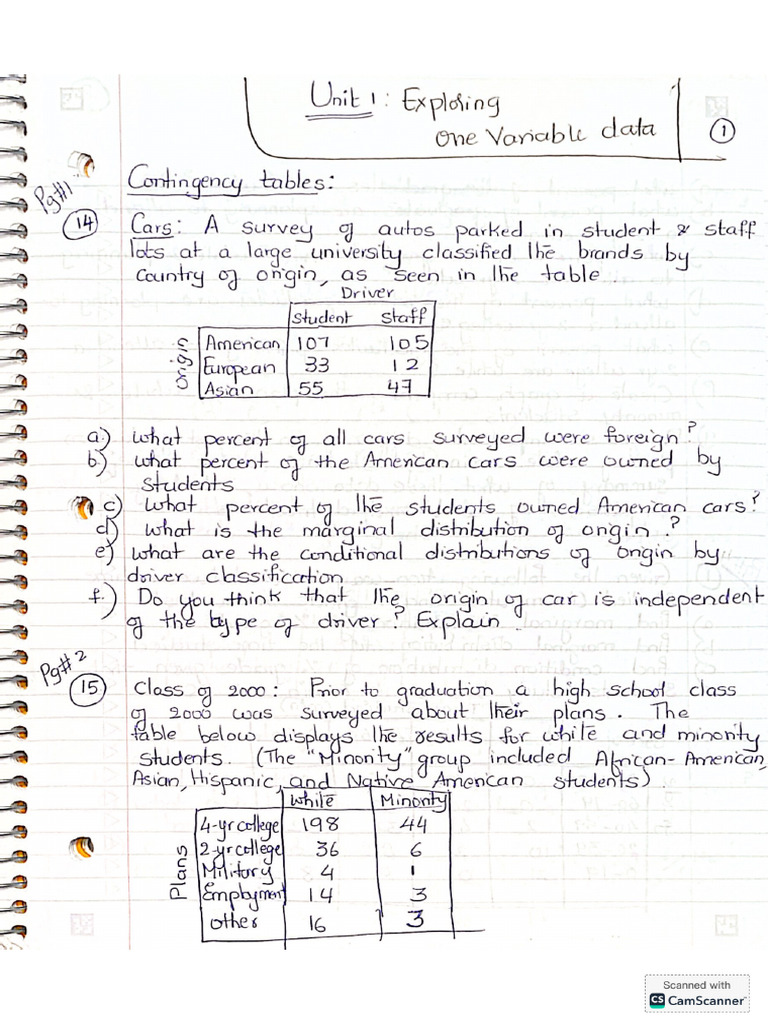 Unit 1: Exploring
One Variable data
1
Pg#1
Contingency tables:
14 Cars: A survey of autos parked in student & staff
lots at a large university classified the brands by
Country of origin, as seen in the table.
Driver
Student Staff
Origin
American 107 105
European 33 12
Asian 55 47
a.) what percent of all cars surveyed were foreign?
b.) what percent of the American cars were owned by
students
c) what percent of the students owned American cars?
d) what is the marginal distribution of origin.?
e) what are the conditional distributions of origin by
driver classification
f.) Do you think that the origin of car is independent
of the type of driver? Explain.
Pg#2
15 Class of 2000: Prior to graduation a high school class
of 2000 was surveyed about their plans. The
table below displays the results for white and minority
students. (The "Minority" group included African-American,
Asian, Hispanic, and Native American students).
White Minority
Plans
4-yr college 198 44
2-yr college 36 6
Military 4 1
Employment 14 3
other 16 3
Scanned with
CS CamScanner